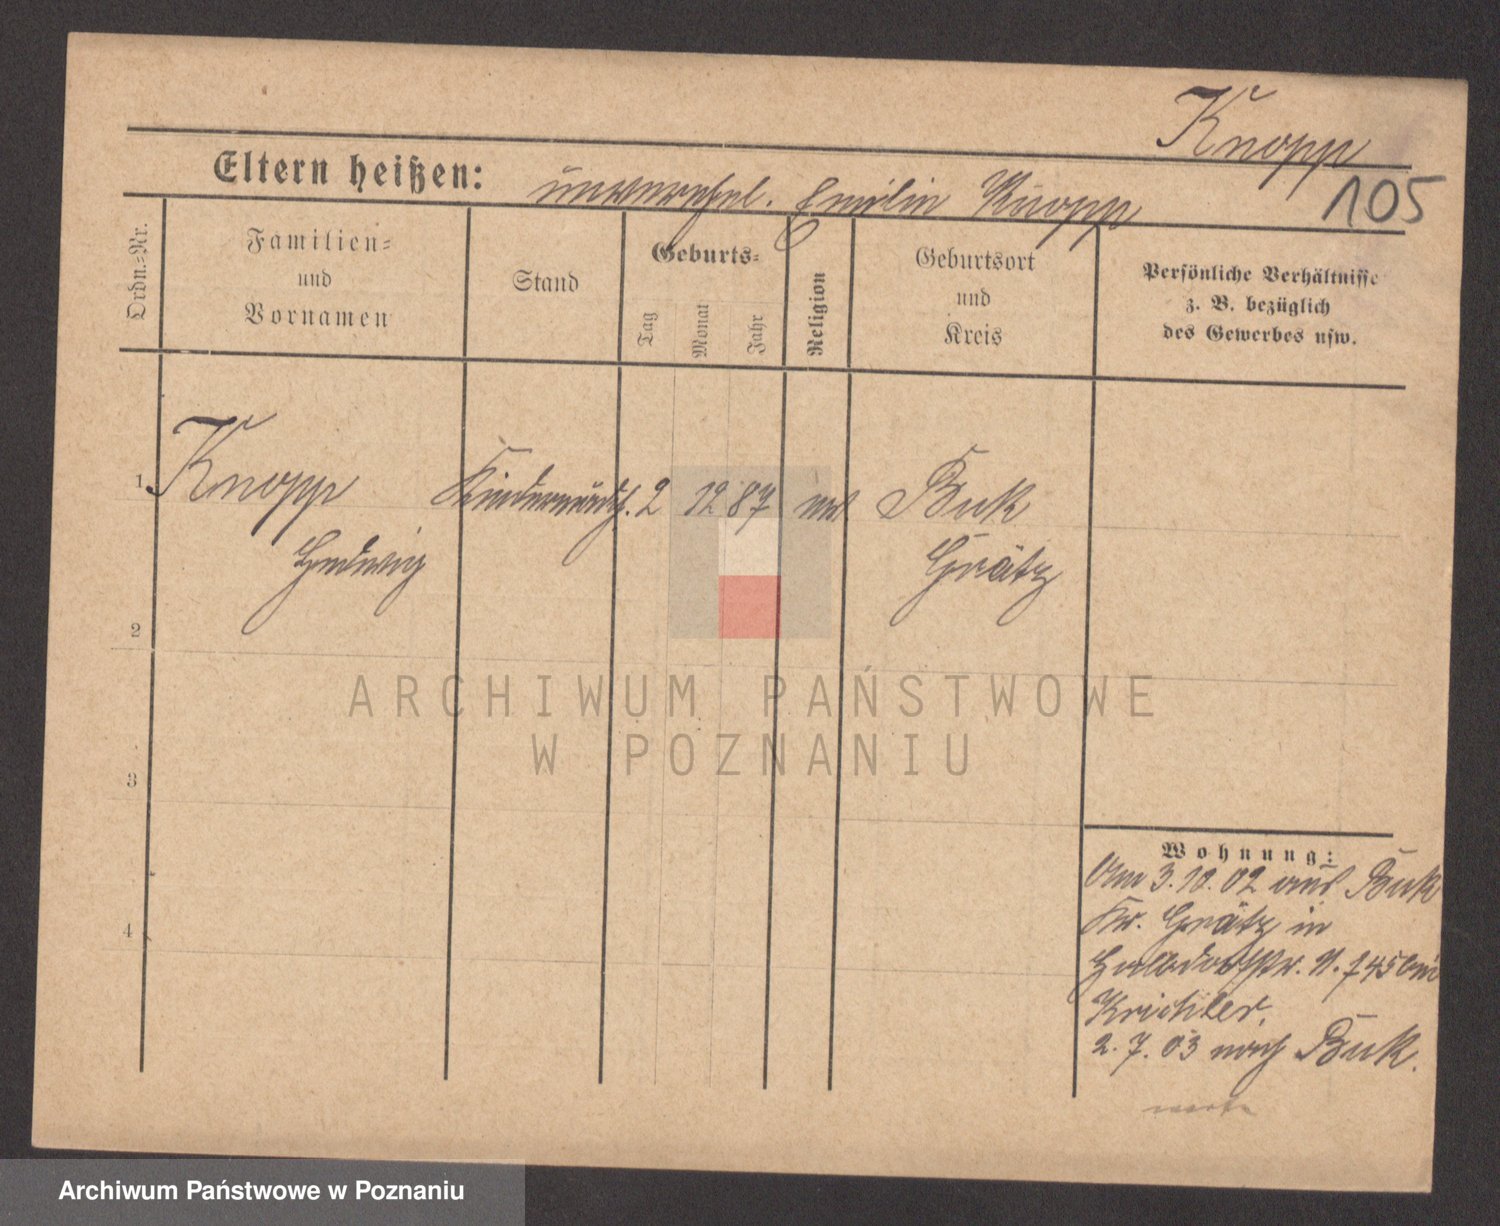 Knopp
105
Eltern heißen: unverehel. Emilie Knopp
Ordn.-Nr.
Familien-
und
Vornamen
Stand
Geburts-
Tag
Monat
Jahr
Religion
Geburtsort
und
Kreis
Persönliche Verhältnisse
z. B. bezüglich
des Gewerbes usw.
1
Knopp
Hedwig
2 12 87
Buk
Grätz
2
3
4
ARCHIWUM PAŃSTWOWE
W POZNANIU
Wohnung:
Am 3.10.02 aus Buk
Kr. Grätz in
Halbdorfstr. N. bei
2.7.03 nach Buk.
Archiwum Państwowe w Poznaniu